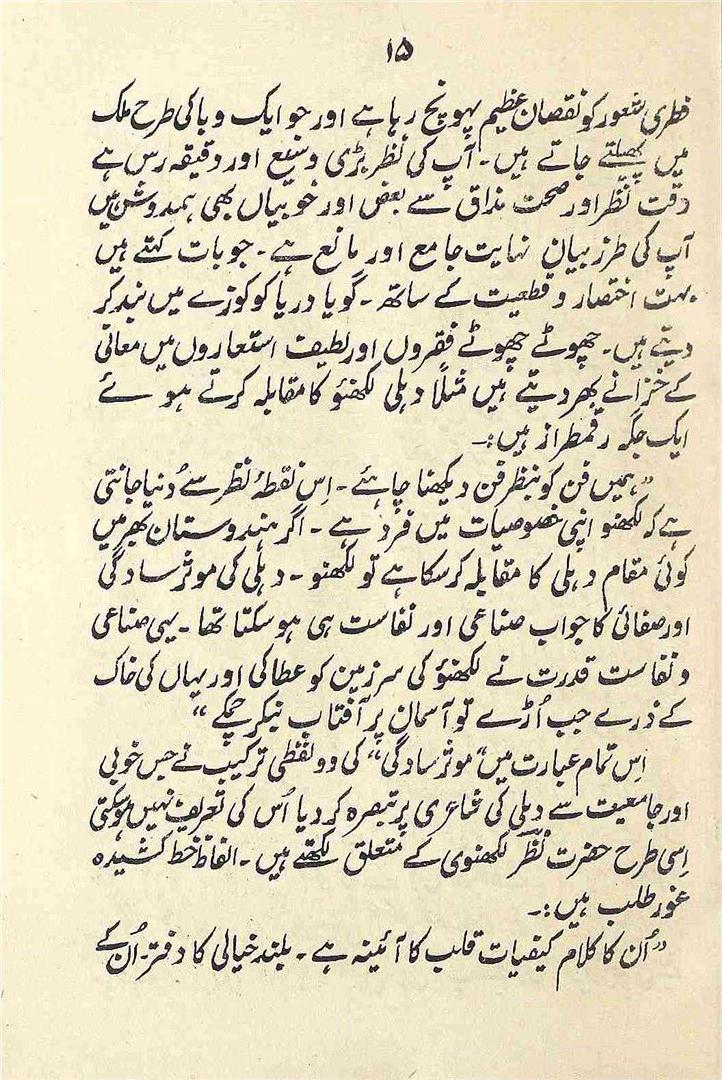 ۱۵
فطری شعور کو نقصان عظیم پہونچ رہا ہے اور جو ایک وبا کی طرح ملک
میں پھیلتے جاتے ہیں۔ آپ کی نظر بڑی وسیع اور دقیقہ رس ہے
دقت نظر اور صحت مذاق سے بعض اور خوبیاں بھی ہمدوش ہیں
آپ کی طرز بیان نہایت جامع اور مانع ہے۔ جو بات کہتے ہیں
بہت اختصار و قطعیت کے ساتھ۔ گویا دریا کو کوزے میں بند کر
دیتے ہیں۔ چھوٹے چھوٹے فقروں اور لطیف استعاروں میں معانی
کے خزانے بھر دیتے ہیں مثلاً دہلی لکھنؤ کا مقابلہ کرتے ہوئے
ایک جگہ رقمطراز ہیں:۔
"ہمیں فن کو بنظر فن دیکھنا چاہئے۔ اِس نقطۂ نظر سے دُنیا جانتی
ہے کہ لکھنؤ اپنی خصوصیات میں فرد ہے۔ اگر ہندوستان بھر میں
کوئی مقام دہلی کا مقابلہ کر سکا ہے تو لکھنؤ۔ دہلی کی موثر سادگی
اور صفائی کا جواب صناعی اور نفاست ہی ہو سکتا تھا۔ یہی صناعی
و نفاست قدرت نے لکھنؤ کی سرزمین کو عطا کی اور یہاں کی خاک
کے ذرے جب اُڑے تو آسمان پر آفتاب بنکر چمکے"
اِس تمام عبارت میں "موثر سادگی" کی دو لفظی ترکیب نے جس خوبی
اور جامعیت سے دہلی کی شاعری پر تبصرہ کر دیا اُس کی تعریف نہیں ہو سکتی
اِسی طرح حضرت نظرؔ لکھنوی کے متعلق لکھتے ہیں۔ الفاظ خط کشیدہ
غور طلب ہیں:۔
"اُن کا کلام کیفیات قلب کا آئینہ ہے۔ بلند خیالی کا دفتر۔ اُن کے